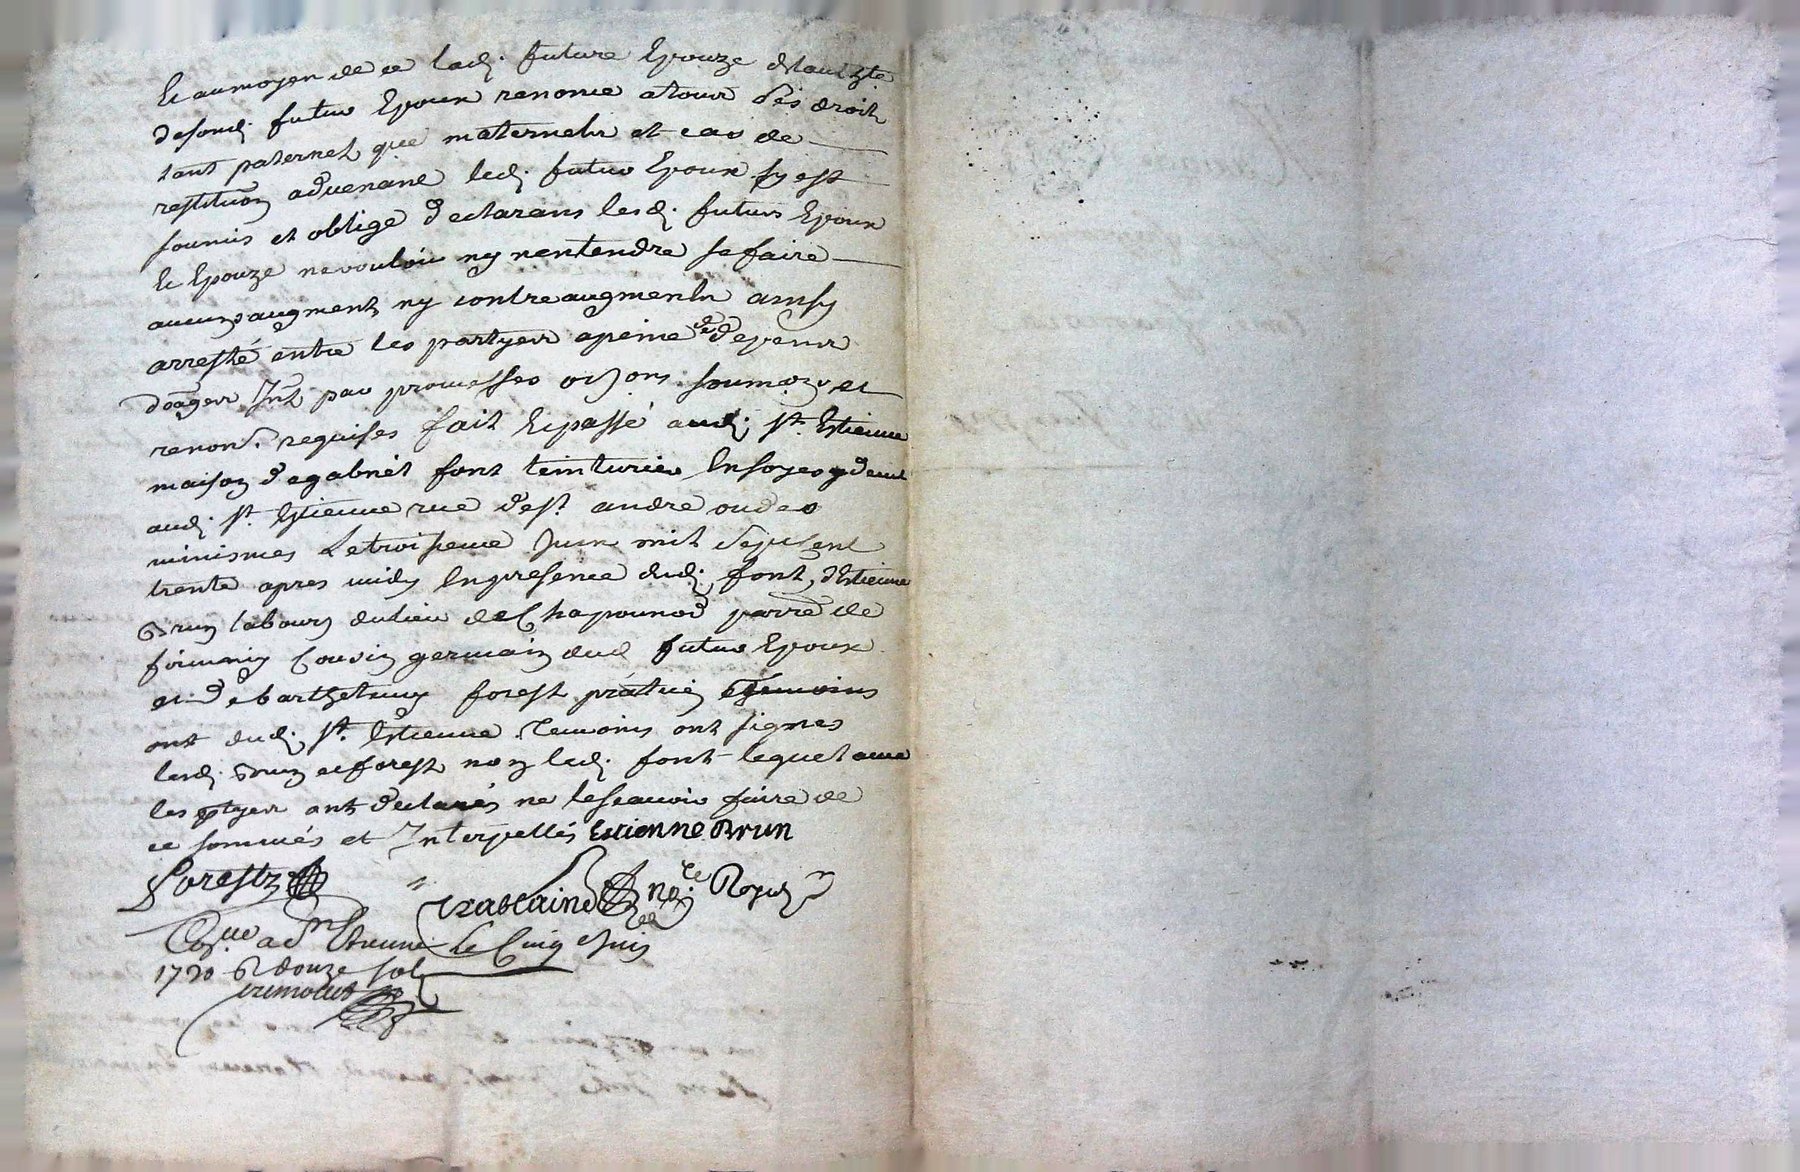 Et au moyen de ce lad. future Epouze de laut.te
desond. futur Epoux renonce a tous ses droits
tant paternels que maternels et cas de
restitution advenant led. futur Epoux sy est
soumis et obligé declarans lesd. futurs Epoux
Et Epouze ne vouloir ny nentendre se faire
aucuns augments ny contreaugments ainsy
arresté entre les partyes a peine de depens
domages Int. par promesses oblons soumons et
renons. requises fait Et passé aud. St. Estienne
maison de gabriel font teinturier En soyes
aud. St. Estienne rue de St. andre ou des
minismes Le troisieme Juin mil sept cent
trente apres midy En presence dud. font, d'Estienne
Brun labour du lieu de Chaponnod parre de
cousin germain dud futur Epoux
et de barthelemy forest praticien
dud. St. Estienne Temoins ont signes
lesd. Brun et forest non led. font lequel avec
les ptyes ont declarés ne le scavoir faire de
ce sommés et Interpellés Estienne Brun
Forest
Trataine no.re Royal
Con.lle a St Etienne Le Cinq Juin
1730 R douze sols